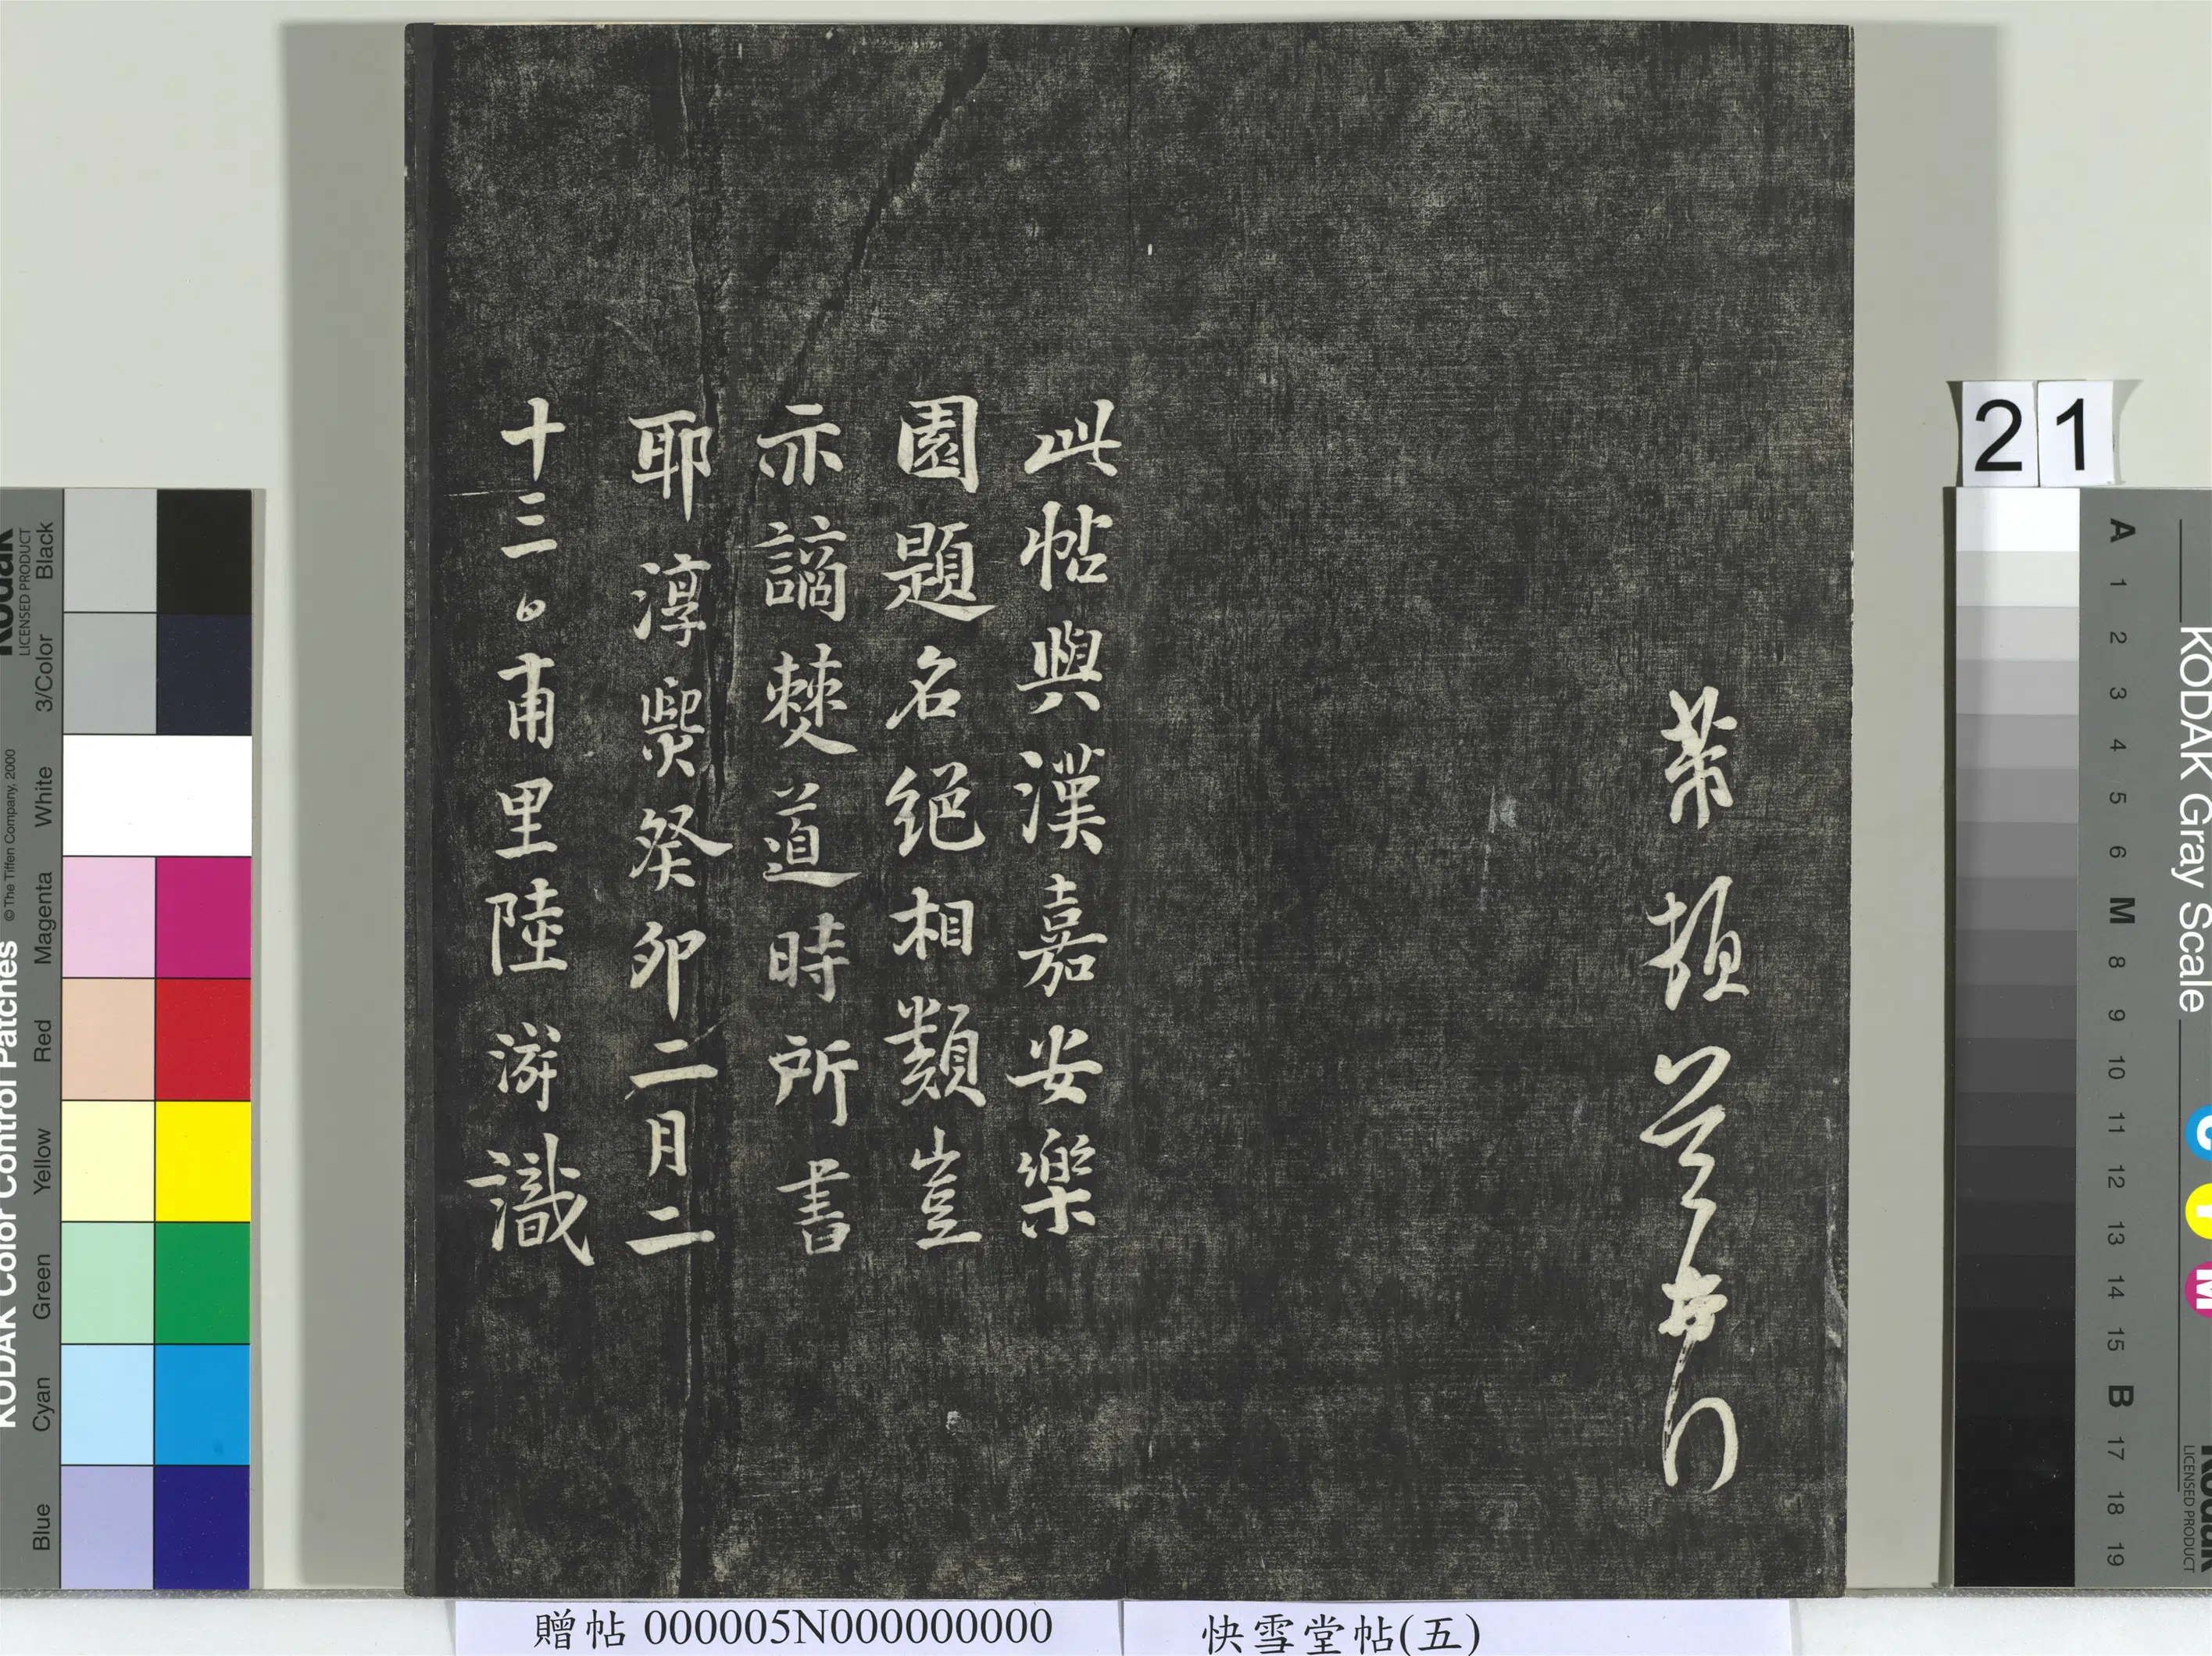 此帖與漢嘉安樂
園題名絕相類豈
亦謫僰道時所書
耶淳熙癸卯二月二
十三日甫里陸游識
21
贈帖 000005N000000000
快雪堂帖(五)
KODAK Color Control Patches
© The Tiffen Company, 2000
Kodak
LICENSED PRODUCT
Blue
Cyan
Green
Yellow
Red
Magenta
White
3/Color
Black
KODAK Gray Scale
A 1 2 3 4 5 6 M 8 9 10 11 12 13 14 15 B 17 18 19
C
Y
M
Kodak
LICENSED PRODUCT